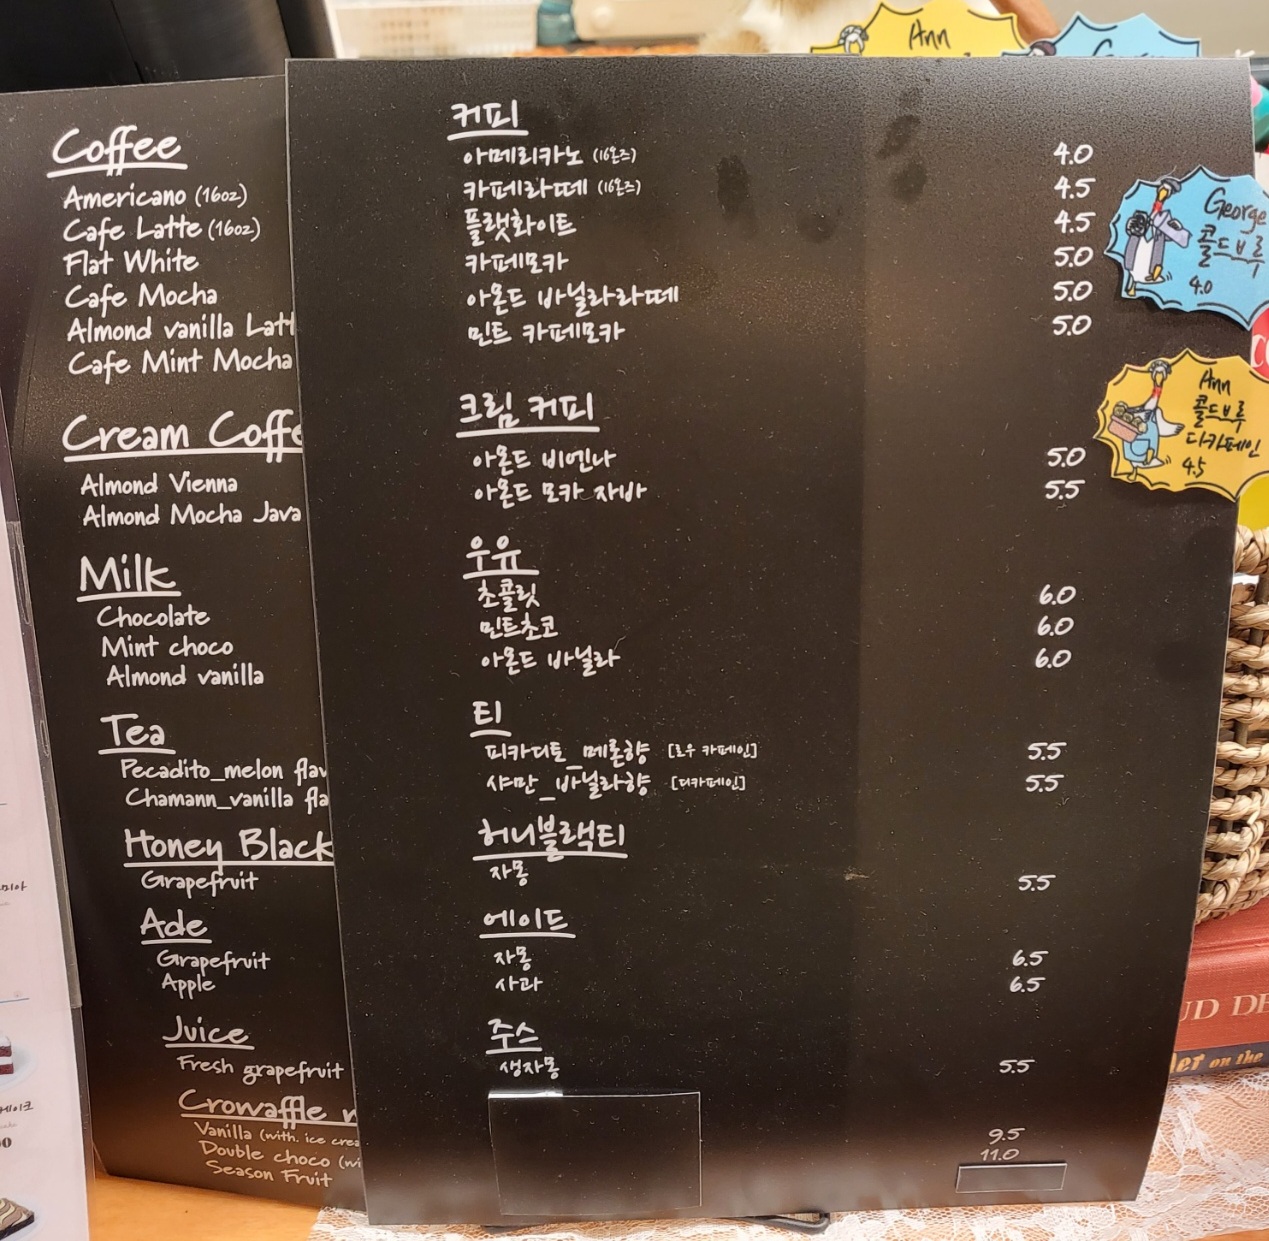 Ann
Coffee
Americano (16oz)
Cafe Latte (16oz)
Flat White
Cafe Mocha
Almond vanilla Latt
Cafe Mint Mocha
Cream Coffe
Almond Vienna
Almond Mocha Java
Milk
Chocolate
Mint choco
Almond vanilla
Tea
Pecadito_melon flav
Chamann_vanilla fla
Honey Black
Grapefruit
Ade
Grapefruit
Apple
Juice
Fresh grapefruit
Crowaffle
Vanilla (with. ice crea
Double choco (wi
Season Fruit
커피
아메리카노 (16온즈) 4.0
카페라떼 (16온즈) 4.5
플랫화이트 4.5
카페모카 5.0
아몬드 바닐라라떼 5.0
민트 카페모카 5.0
크림 커피
아몬드 비엔나 5.0
아몬드 모카 자바 5.5
우유
초콜릿 6.0
민트초코 6.0
아몬드 바닐라 6.0
티
피카디토_메론향 [로우 카페인] 5.5
샤만_바닐라향 [디카페인] 5.5
허니블랙티
자몽 5.5
에이드
자몽 6.5
사과 6.5
주스
생자몽 5.5
9.5
11.0
George
콜드브루
4.0
Ann
콜드브루
디카페인
4.5
UD DE
on the